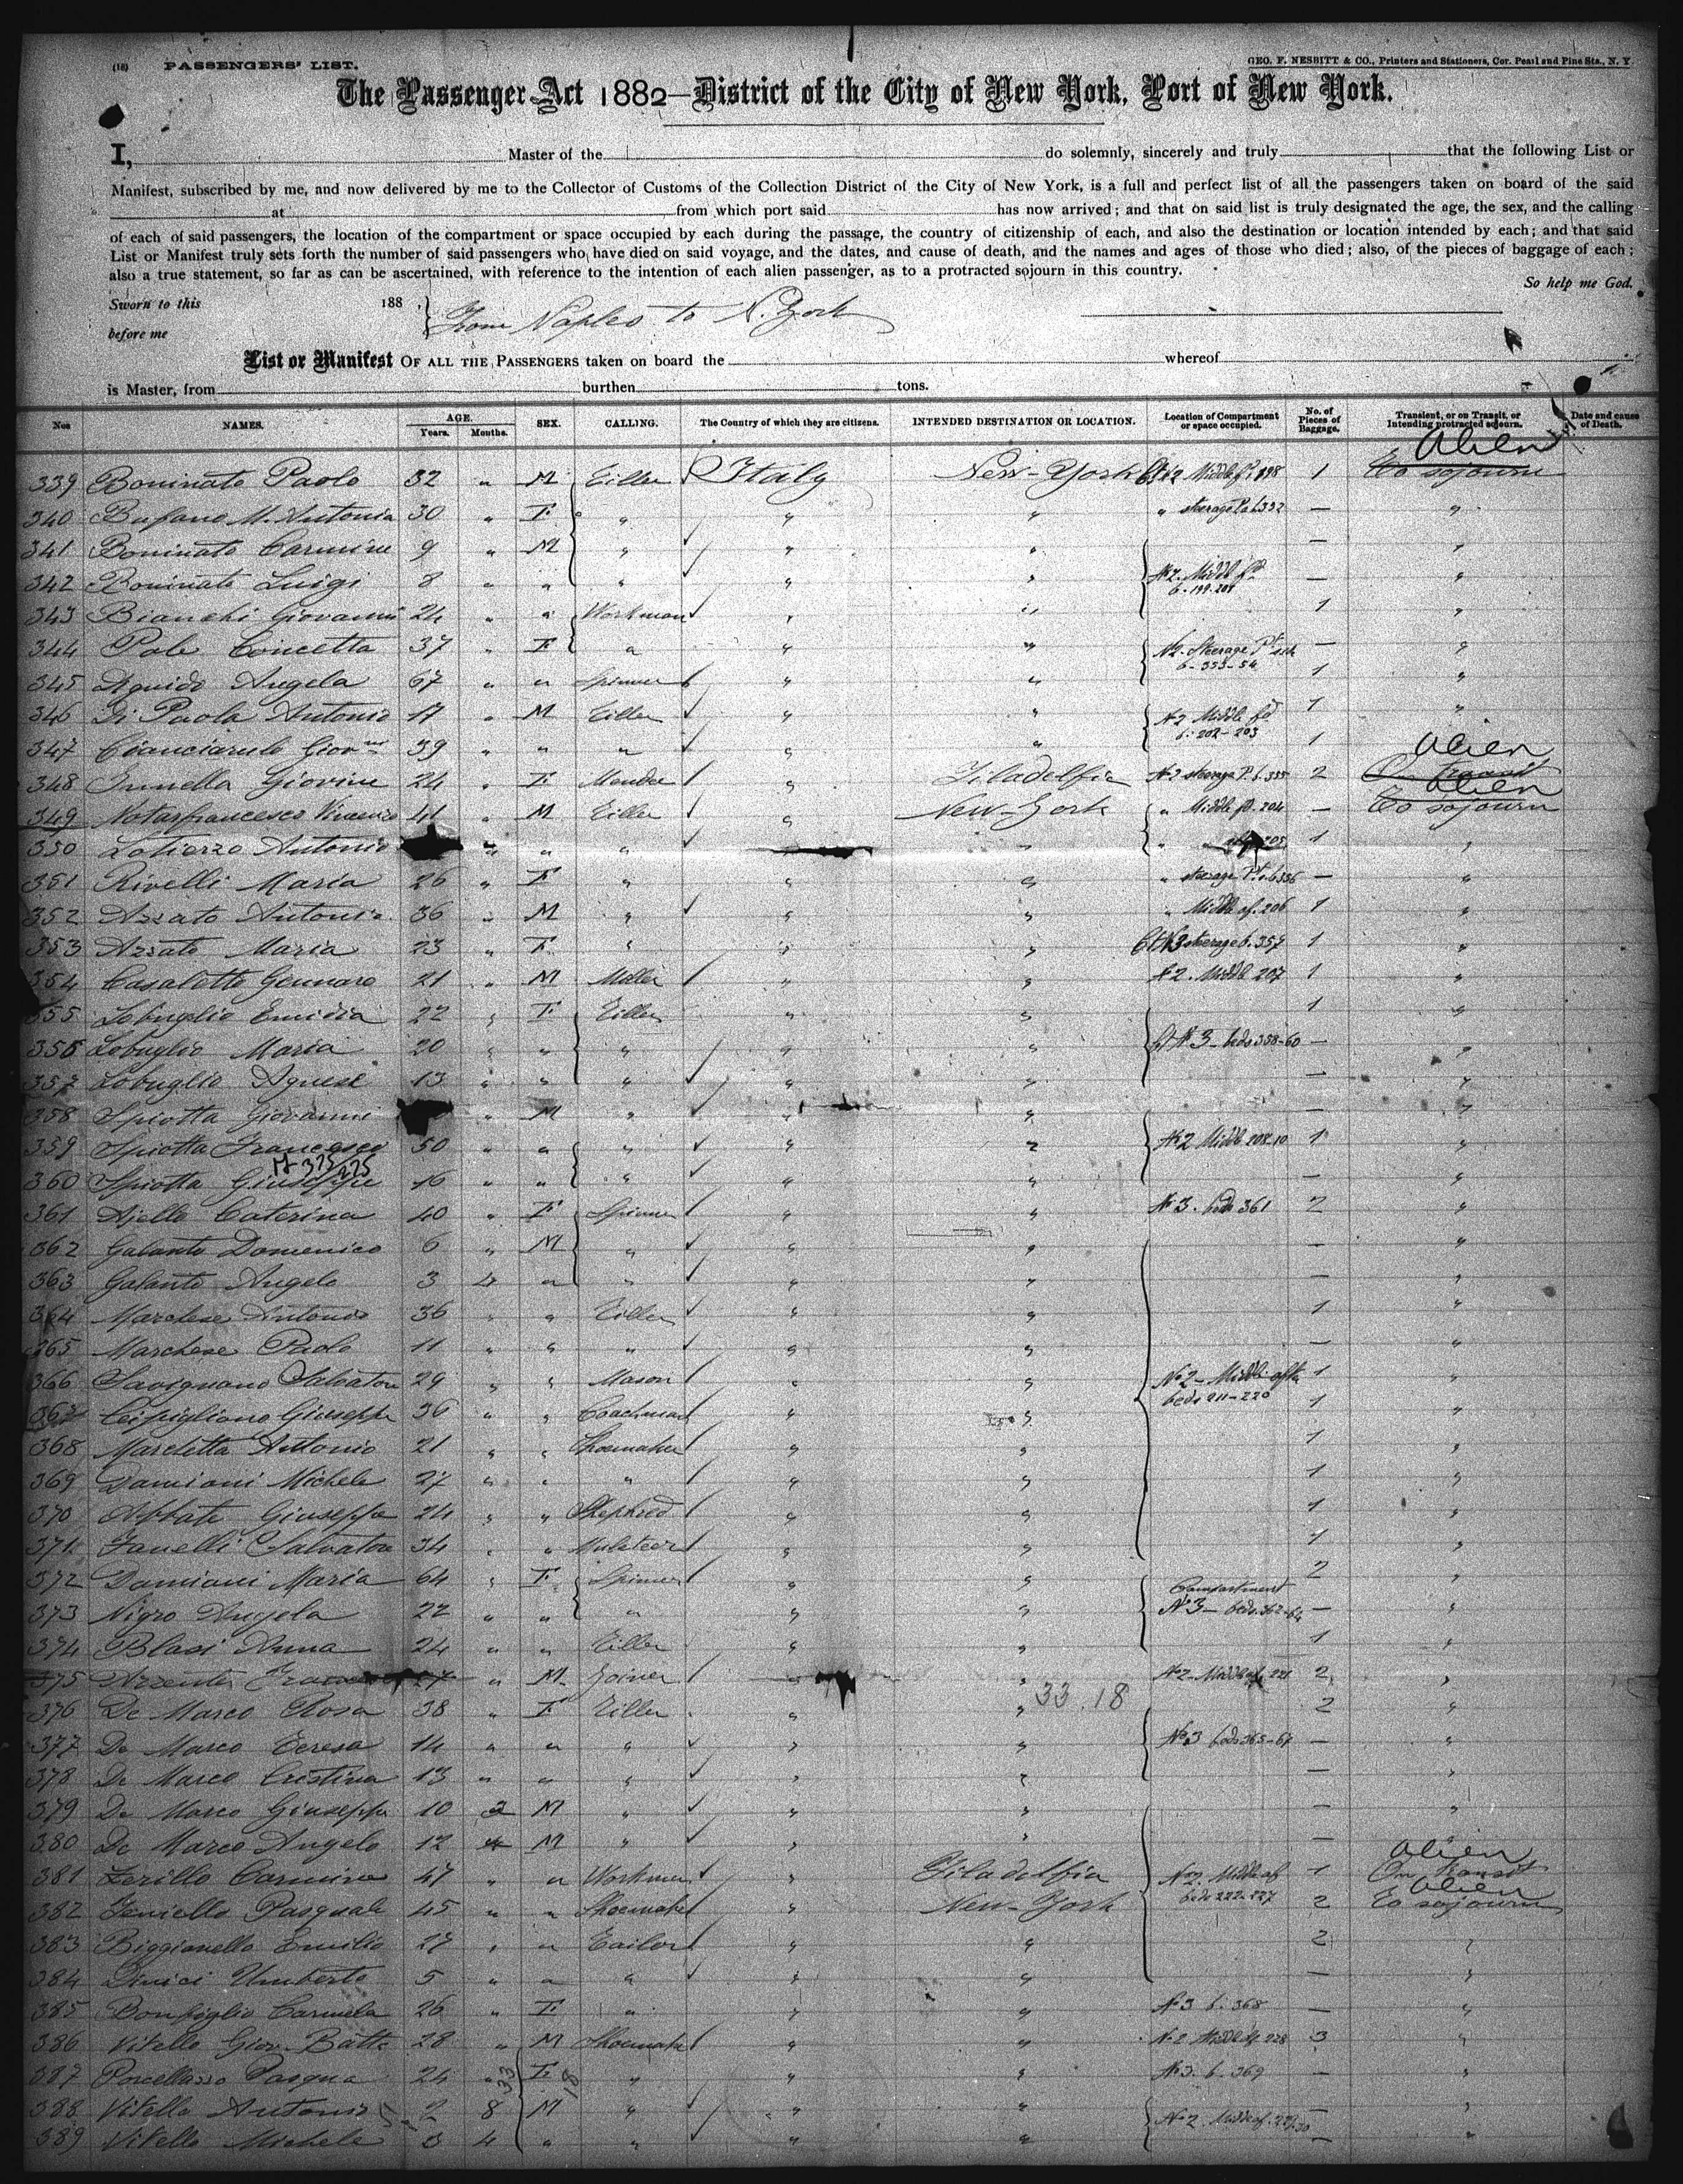 (18) PASSENGERS' LIST.
GEO. F. NESBITT & CO., Printers and Stationers, Cor. Pearl and Pine Sts., N. Y.
The Passenger Act 1882—District of the City of New York, Port of New York.
I, Master of the do solemnly, sincerely and truly that the following List or
Manifest, subscribed by me, and now delivered by me to the Collector of Customs of the Collection District of the City of New York, is a full and perfect list of all the passengers taken on board of the said
at from which port said has now arrived; and that on said list is truly designated the age, the sex, and the calling
of each of said passengers, the location of the compartment or space occupied by each during the passage, the country of citizenship of each, and also the destination or location intended by each; and that said
List or Manifest truly sets forth the number of said passengers who have died on said voyage, and the dates, and cause of death, and the names and ages of those who died; also, of the pieces of baggage of each;
also a true statement, so far as can be ascertained, with reference to the intention of each alien passenger, as to a protracted sojourn in this country.
So help me God.
Sworn to this 188
before me
From Naples to N. York
List or Manifest OF ALL THE PASSENGERS taken on board the whereof
is Master, from burthen tons.
Nos NAMES. AGE. Years. Months. SEX. CALLING. The Country of which they are citizens. INTENDED DESTINATION OR LOCATION. Location of Compartment or space occupied. No. of Pieces of Baggage. Transient, or on Transit, or Intending protracted sojourn. Date and cause of Death.
Alien
339 Boninato Paolo 32 " M Tiller Italy New-York 1 To sojourn
340 Bufano M. Antonia 30 " F " " " " steerage — "
341 Boninato Carmine 9 " M " " " — "
342 Boninato Luigi 8 " " " " " — "
No 2. Middle
6-199-201
343 Bianchi Giovanni 24 " " Workman " " 1 "
344 Pole Concetta 37 " F " " " No 2. Steerage — "
6-353-54
345 Aguido Angela 67 " " Spinner " " 1 "
346 Di Paola Antonio 17 " M Tiller " " No 2 Middle 1 "
6-202-203
347 Cianciarulo Giov. 39 " " " " " 1
Alien
348 Giovine 24 " F " Filadelfia No 2 steerage 2 On transit
Alien
349 Notarfrancesco Vincenzo 41 " M Tiller " New-York " Middle 204 — To sojourn
350 Antonio " " " " " 205 1 "
351 Rivelli Maria 26 " F " " " " steerage — "
352 Azzato Antonio 36 " M " " " " Middle af. 206 1 "
353 Azzato Maria 23 " F " " " No 3 steerage b. 357 1 "
354 Casaletto Gennaro 21 " M Miller " " No 2. Middle 207 1 "
355 Lobuglio Emidia 22 " F Tiller " " 1 "
356 Lobuglio Maria 20 " " " " " No 3 - beds 358-60 — "
357 Lobuglio Agnese 13 " " " " " — "
358 Spiotta Giovanni " M " " " — "
359 Spiotta Francesco 50 " " " " " No 2 Middle 208-10 1 "
360 Spiotta Giuseppe 16 " " " " " — "
361 Ajello Caterina 40 " F Spinner " " No 3. beds 361 2 "
362 Galanto Domenico 6 " M " " " — "
363 Galanto Angelo 3 4 " " " " — "
364 Marchese Antonio 36 " " Tiller " " 1 "
365 Marchese Paolo 11 " " " " " — "
366 Savignano Salvatore 29 " " Mason " " No 2 - Middle 1 "
beds 211-220
367 Giuseppe 36 " " Coachman " " 1 "
368 Marchetta Antonio 21 " " Shoemaker " " 1 "
369 Damiani Michele 27 " " " " " 1 "
370 Abbate Giuseppe 24 " " Shepherd " " 1 "
371 Fanelli Salvatore 34 " " Muleteer " " 1 "
372 Damiani Maria 64 " F Spinner " " Compartment 2 "
373 Nigro Angela 22 " " " " " No 3 - beds 362-64 — "
374 Blasi Anna 24 " " Tiller " " 1 "
375 27 " M Joiner " " No 2 - Middle af. 221 2 "
33.18
376 De Marco Rosa 38 " F Tiller " " 2 "
377 De Marco Teresa 14 " " " " " No 3 beds 365-67 — "
378 De Marco Cristina 13 " " " " " — "
379 De Marco Giuseppe 10 2 M " " " — "
380 De Marco Angelo 12 4 M " " " —
Alien
381 Zerillo Carmine 47 " " Workman " Filadelfia No 2. Middle af 1 On transit
Alien
382 Pasquale 45 " " Shoemaker " New-York beds 222-227 2 To sojourn
383 Biggianello Emilio 27 " " Tailor " " 2 "
384 Umberto 5 " " " " " — "
385 Bonfiglio Carmela 26 " F " " " No 3 b. 368 — "
386 Vitello Giov. Batta 28 " M Shoemaker " " No 2 Middle af 228 3 "
387 Porcellasso Pasqua 24 " F " " " No 3. b. 369 — "
388 Vitello Antonio 2 8 M " " " — "
No 2. Middle af. 229-30
389 Vitello Michele 3 4 " " " " — "